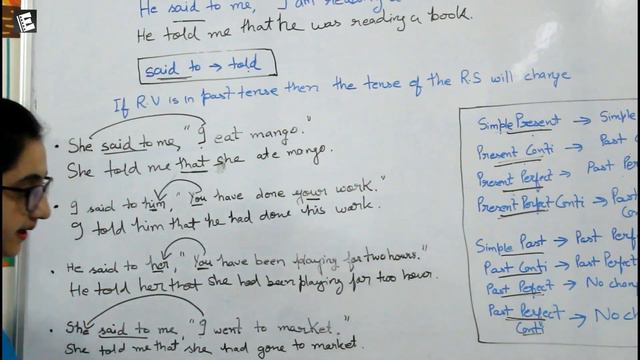 He said to me, "I am reading a
He told me that he was reading a book.
said to → told
If R.V is in past tense then the tense of the R.S will change
• She said to me, "I eat mango."
She told me that she ate mango.
• I said to him, "You have done your work."
I told him that he had done his work.
• He said to her, "You have been playing for two hours."
He told her that she had been playing for two hour.
• She said to me, "I went to market."
She told me that, she had gone to market.
Simple Present → Simple
Present Conti → Past C
Present Perfect → Past Per
Present Perfect Conti → Past
Simple Past → Past Perf
Past Conti → Past Perfect
Past Perfect → No chan
Past Perfect Conti → No ch